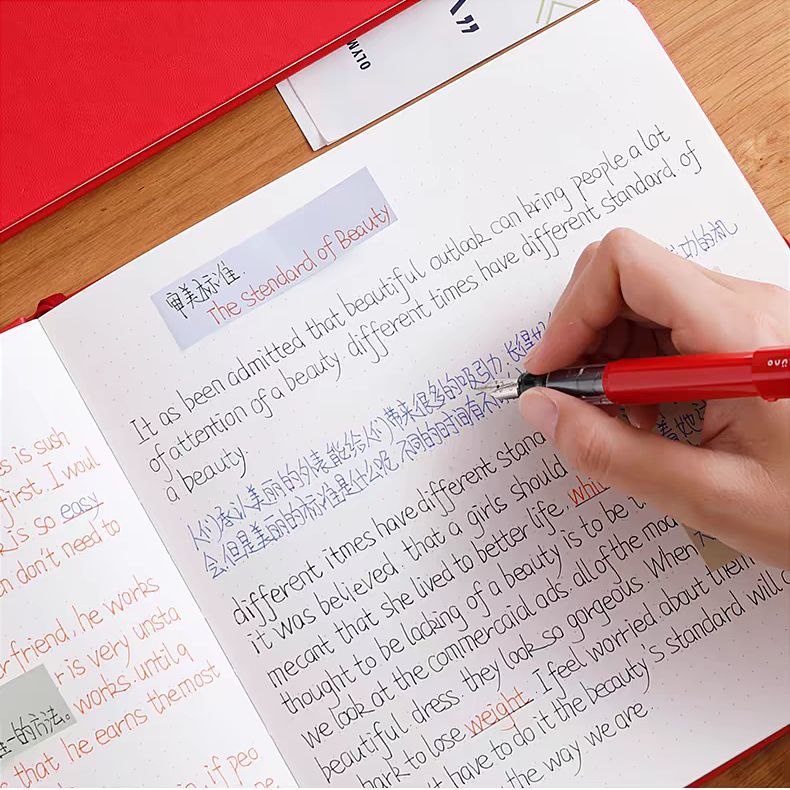 OLYM
审美标准.
The Stendard of Beauty
It as been admitted that beautiful outlook can bring people a lot
of attention of a beauty. different times have different standard of
a beauty.
人们承认美丽的外表能给人们带来很多的吸引力,长得好
成功的机
会.但是美丽的标准是什么呢.不同的时间有不
着她
different itmes have different stand
it was believed. that a girls should
mecant that she lived to better life, whi
thought to be lacking of a beauty is to be t
we look at the commercaial ads. all of the mod
beautiful dress. they look so gorgeous. When
hark to lose weight. I feel worried about them
't have to do it the becauty's standard will c
the way we are
es is sush
first. I woul
R is so easy
en don't need to
r friend, he works
r is very unsta
works. until q
一的方法。
s that he earns the most
if peo
uno